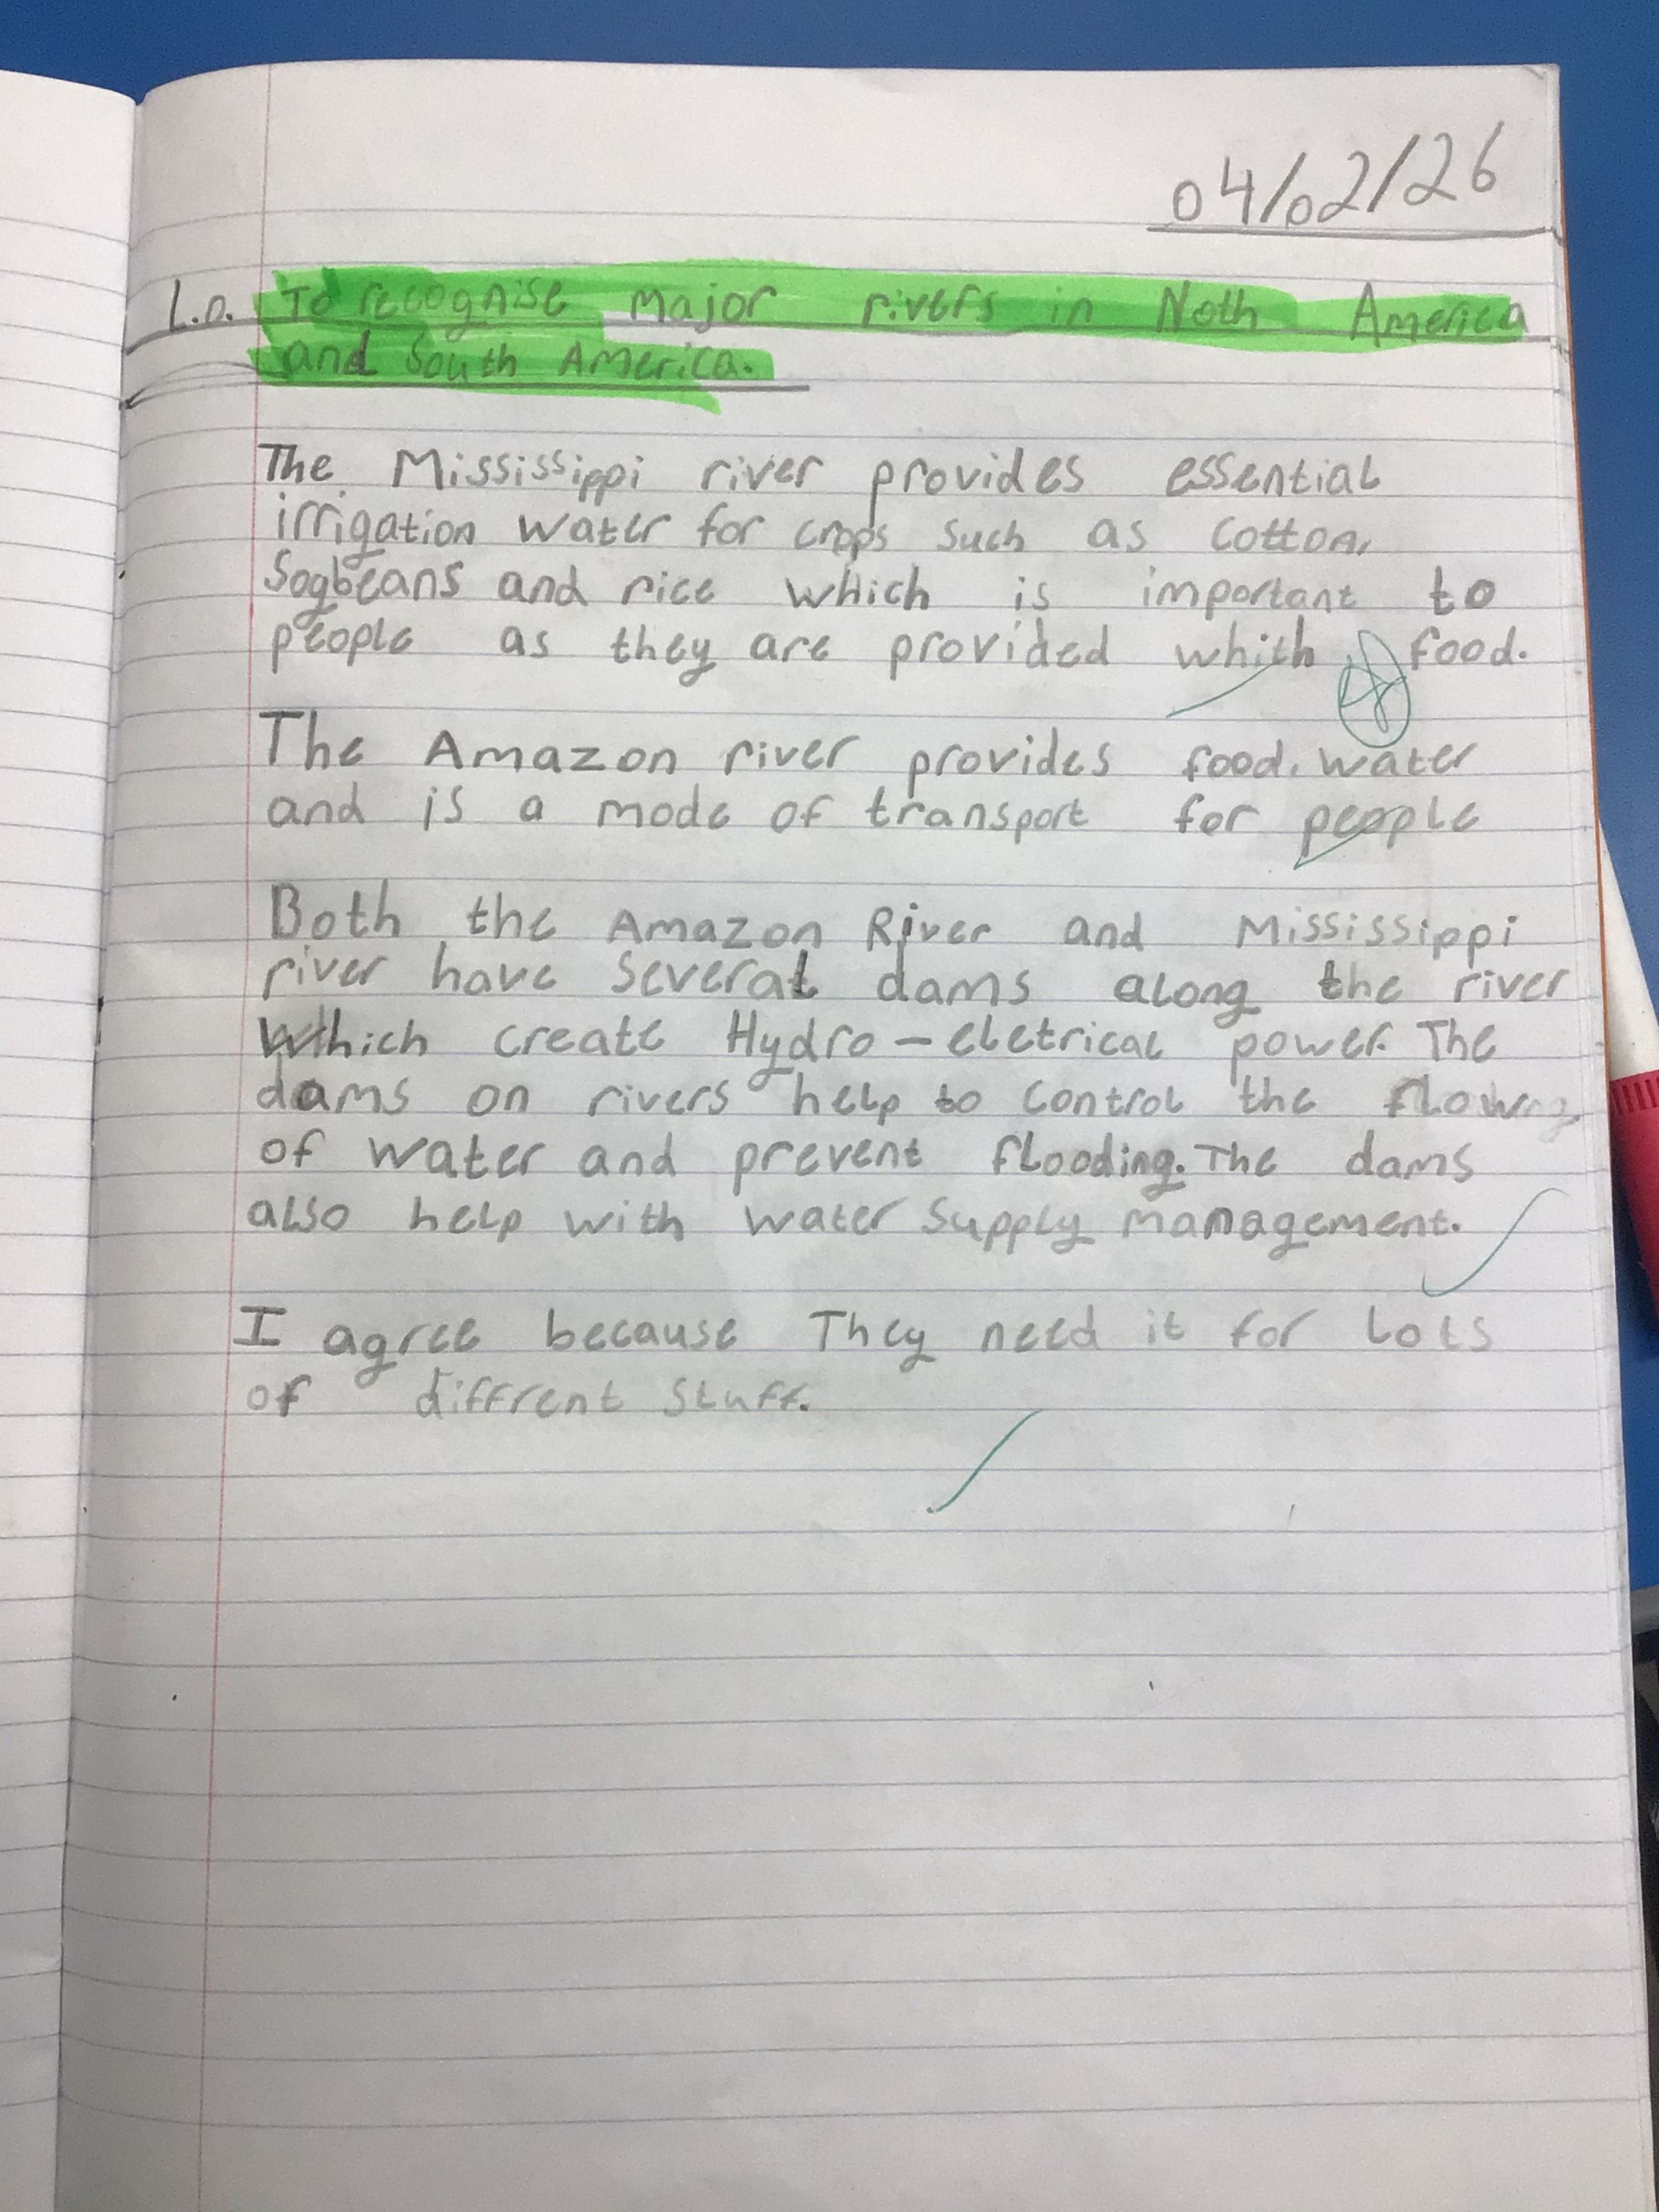 04/02/26
L.O. To recognise major rivers in Noth America
and South America.
The Mississippi river provides essential
irrigation water for crops such as cotton,
Soybeans and rice which is important to
people as they are provided whith food.
The Amazon river provides food, water
and is a mode of transport for people
Both the Amazon River and Mississippi
river have several dams along the river
Which create Hydro-eletrical power. The
dams on rivers help to control the
of water and prevent flooding. The dams
also help with water supply management.
I agree because They need it for lots
of diffrent stuff.